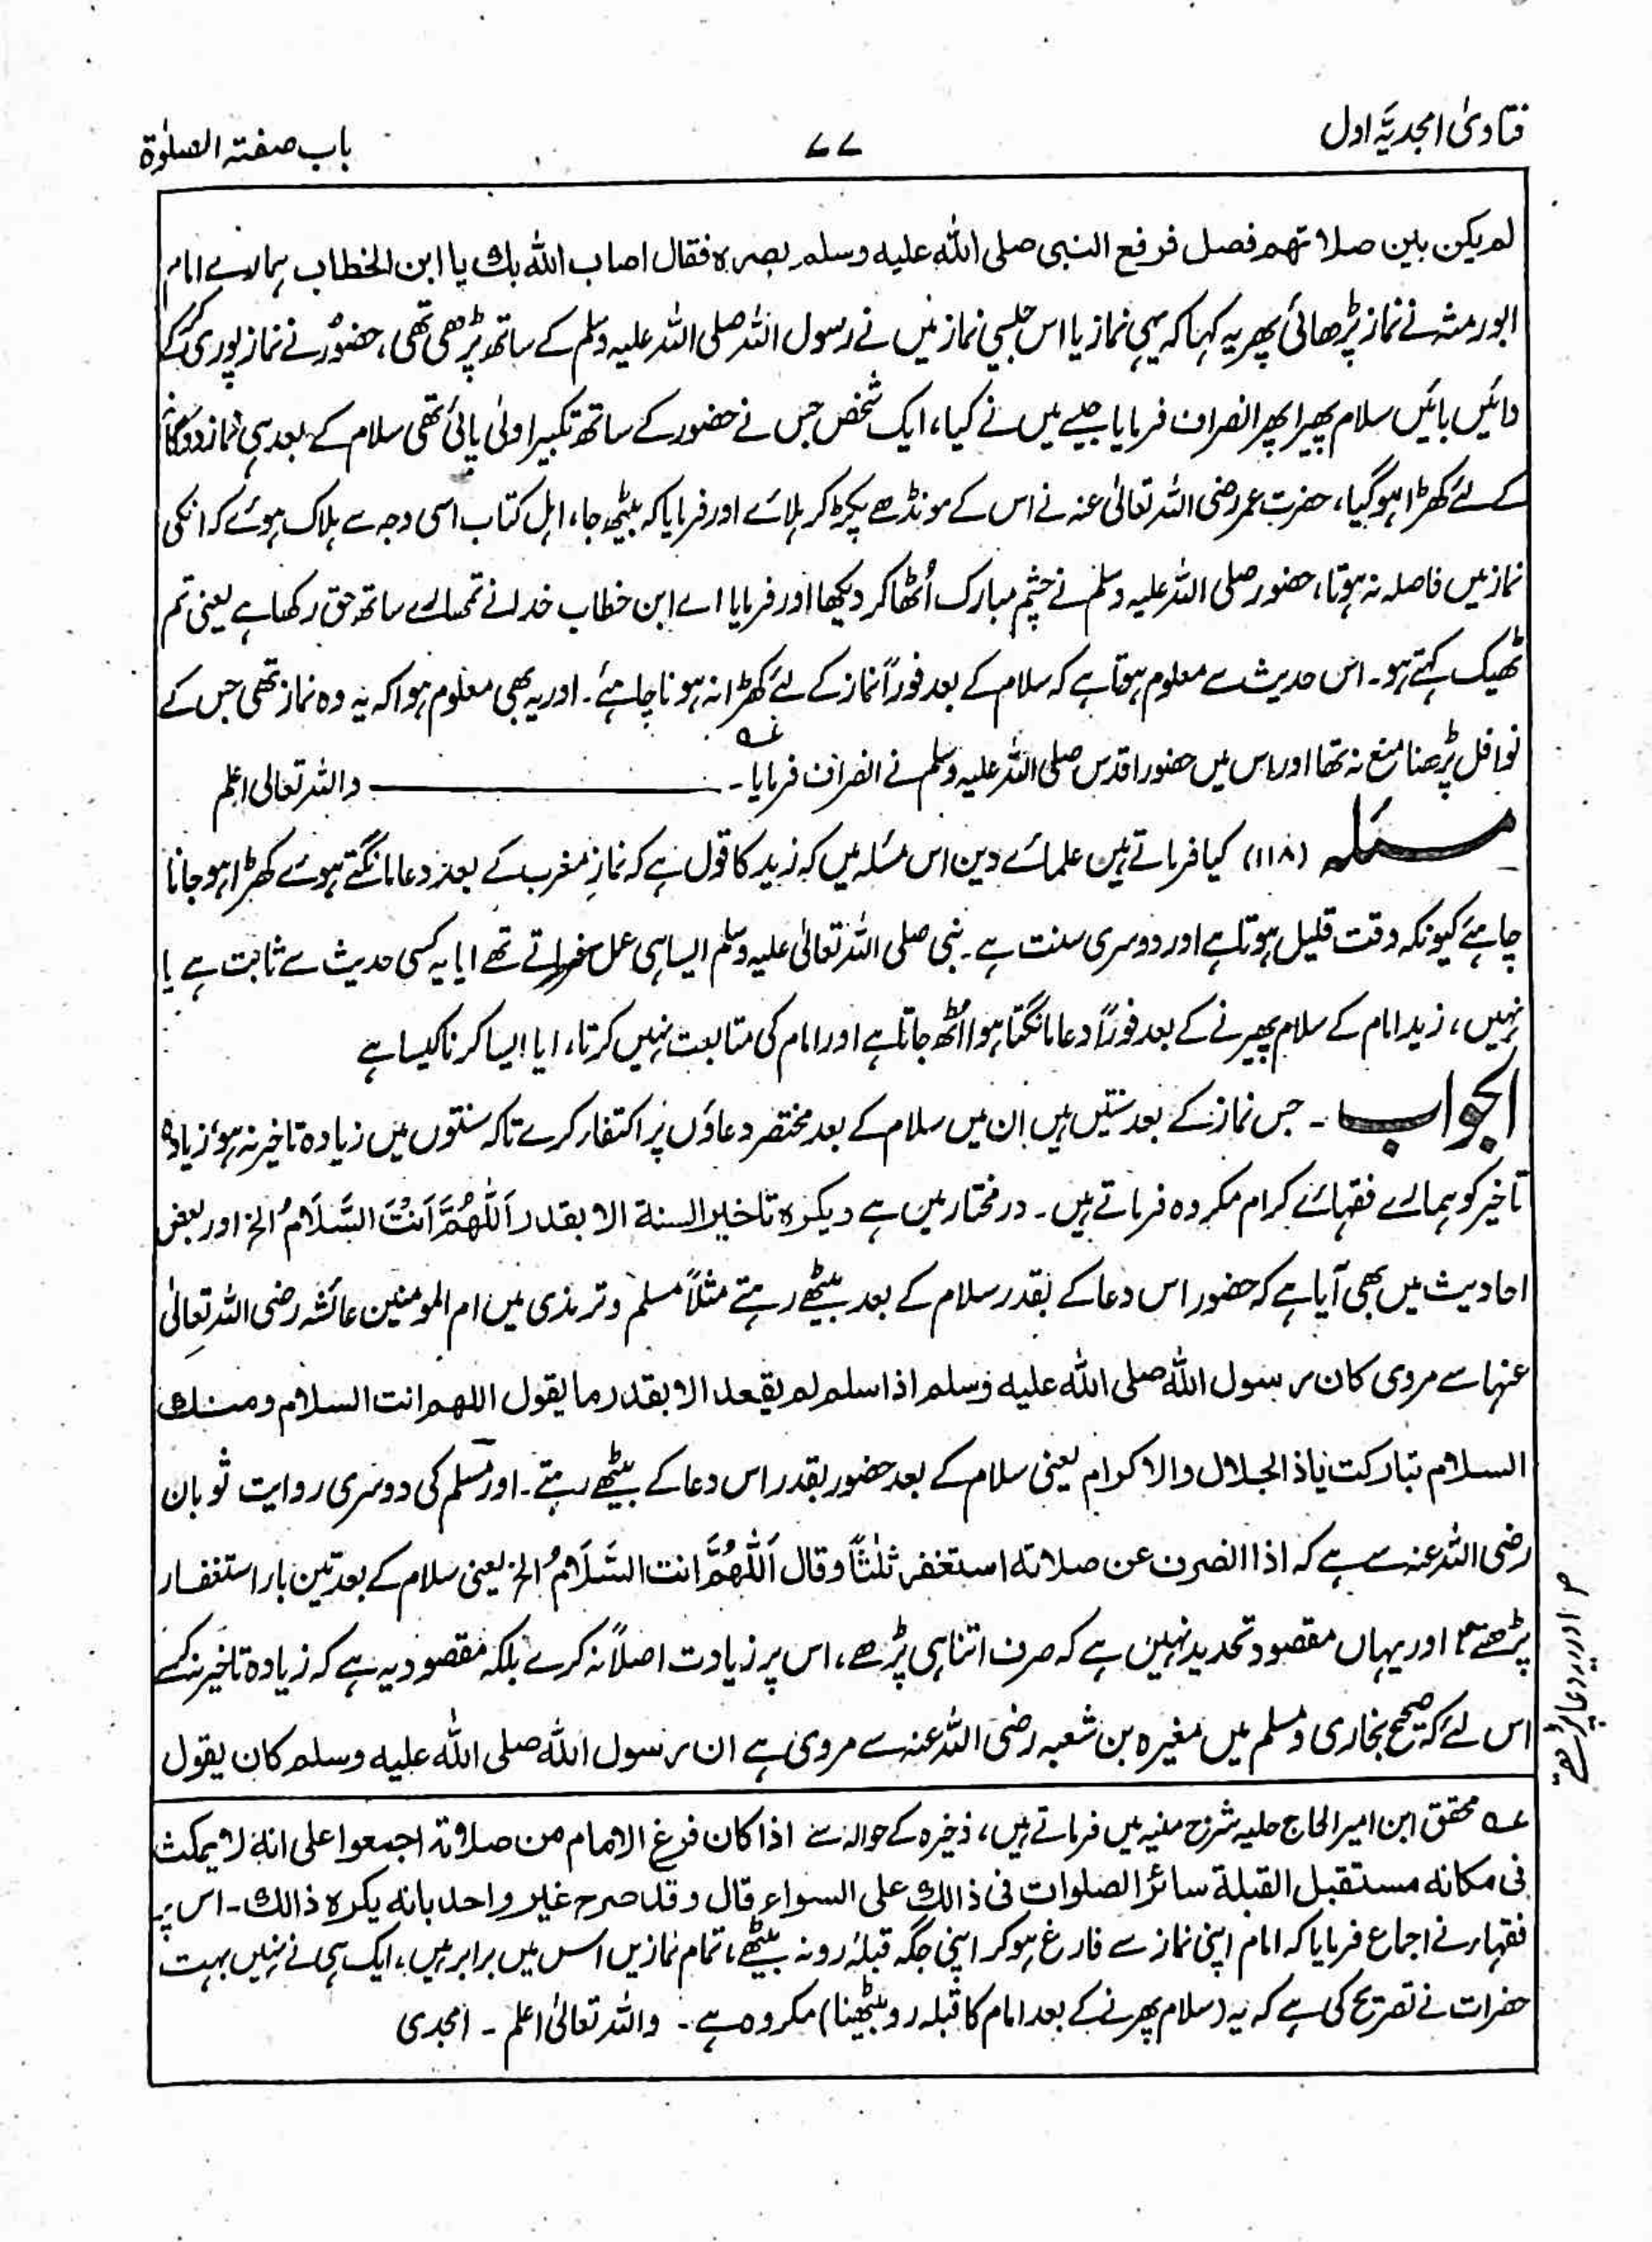 فتاویٰ امجدیَّہ اول
۷۷
باب صفتہ الصلوٰۃ
لم یکن بین صلاتهم فصل فرفع النبی صلی اللہ علیه وسلم بصره فقال اصاب اللہ بك یا ابن الخطاب ہمارے امام
ابو رمثہ نے نماز پڑھائی پھر یہ کہا کہ یہی نماز یا اس جیسی نماز میں نے رسول اللہ صلی اللہ علیہ وسلم کے ساتھ پڑھی تھی، حضور نے نماز پوری کرکے
دائیں بائیں سلام پھیرا پھر انصراف فرمایا جیسے میں نے کیا، ایک شخص جس نے حضور کے ساتھ تکبیر اولیٰ پائی تھی سلام کے بعد ہی نماز دوگانہ
کے لئے کھڑا ہو گیا، حضرت عمر رضی اللہ تعالیٰ عنہ نے اس کے مونڈھے پکڑ کر ہلائے اور فرمایا کہ بیٹھ جا، اہل کتاب اسی وجہ سے ہلاک ہوئے کہ انکی
نماز میں فاصلہ نہ ہوتا، حضور صلی اللہ علیہ وسلم نے چشم مبارک اُٹھا کر دیکھا اور فرمایا اے ابن خطاب خدا نے تمھارے ساتھ حق رکھا ہے یعنی تم
ٹھیک کہتے ہو۔ اس حدیث سے معلوم ہوتا ہے کہ سلام کے بعد فوراً نماز کے لئے کھڑا نہ ہونا چاہئے۔ اور یہ بھی معلوم ہوا کہ یہ وہ نماز تھی جس کے
نوافل پڑھنا منع نہ تھا اور اس میں حضور اقدس صلی اللہ علیہ وسلم نے انصراف فرمایا۔ عہ واللہ تعالیٰ اعلم
مسئلہ (۱۱۸) کیا فرماتے ہیں علمائے دین اس مسئلہ میں کہ زید کا قول ہے کہ نمازِ مغرب کے بعد دعا مانگتے ہوئے کھڑا ہو جانا
چاہئے کیونکہ وقت قلیل ہوتا ہے اور دوسری سنت ہے۔ نبی صلی اللہ تعالیٰ علیہ وسلم ایسا ہی عمل فرماتے تھے ایا یہ کسی حدیث سے ثابت ہے یا
نہیں، زید امام کے سلام پھیرنے کے بعد فوراً دعا مانگتا ہوا اُٹھ جاتا ہے اور امام کی متابعت نہیں کرتا، ایا ایسا کرنا کیسا ہے
الجواب۔ جس نماز کے بعد سنتیں ہیں ان میں سلام کے بعد مختصر دعاؤں پر اکتفار کرے تاکہ سنتوں میں زیادہ تاخیر نہ ہو، زیادہ
تاخیر کو ہمارے فقہائے کرام مکروہ فرماتے ہیں۔ درمختار میں ہے ویکره تاخیر السنة الا بقدر اَللّٰهُمَّ اَنْتَ السَّلَامُ الخ اور بعض
احادیث میں بھی آیا ہے کہ حضور اس دعا کے بقدر سلام کے بعد بیٹھے رہتے مثلاً مسلم و ترمذی میں ام المومنین عائشہ رضی اللہ تعالیٰ
عنہا سے مروی کان رسول اللہ صلی اللہ علیه وسلم اذا سلم لم یقعد الا بقدر ما یقول اللهم انت السلام ومنك
السلام تبارکت یا ذا الجلال والاکرام یعنی سلام کے بعد حضور بقدر اس دعا کے بیٹھے رہتے۔ اور مسلم کی دوسری روایت ثوبان
رضی اللہ عنہ سے ہے کہ اذا انصرف عن صلاته استغفر ثلٰثاً وقال اَللّٰهُمَّ انت السَّلَامُ الخ یعنی سلام کے بعد تین بار استغفار
پڑھتے ؁ اور یہاں مقصود تحدید نہیں ہے کہ صرف اتنا ہی پڑھے، اس پر زیادت اصلاً نہ کرے بلکہ مقصود یہ ہے کہ زیادہ تاخیر نہ کرے
؁ اور یہ دعا پڑھتے
اس لئے کہ صحیح بخاری و مسلم میں مغیرہ بن شعبہ رضی اللہ عنہ سے مروی ہے ان رسول اللہ صلی اللہ علیه وسلم کان یقول
عہ محقق ابن امیر الحاج حلیہ شرح منیہ میں فرماتے ہیں، ذخیرہ کے حوالہ سے اذا کان فرغ الامام من صلاته اجمعوا علی انه لا یمکث
فی مکانه مستقبل القبلة سائر الصلوات فی ذالك علی السواء قال وقد صرح غیر واحد بانه یکره ذالك۔ اس پر
فقہار نے اجماع فرمایا کہ امام اپنی نماز سے فارغ ہو کر اپنی جگہ قبلہ رو نہ بیٹھے، تمام نمازیں اس میں برابر ہیں، ایک ہی نے نہیں بہت
حضرات نے تصریح کی ہے کہ یہ (سلام پھرنے کے بعد امام کا قبلہ رو بیٹھنا) مکروہ ہے۔ واللہ تعالیٰ اعلم۔ امجدی